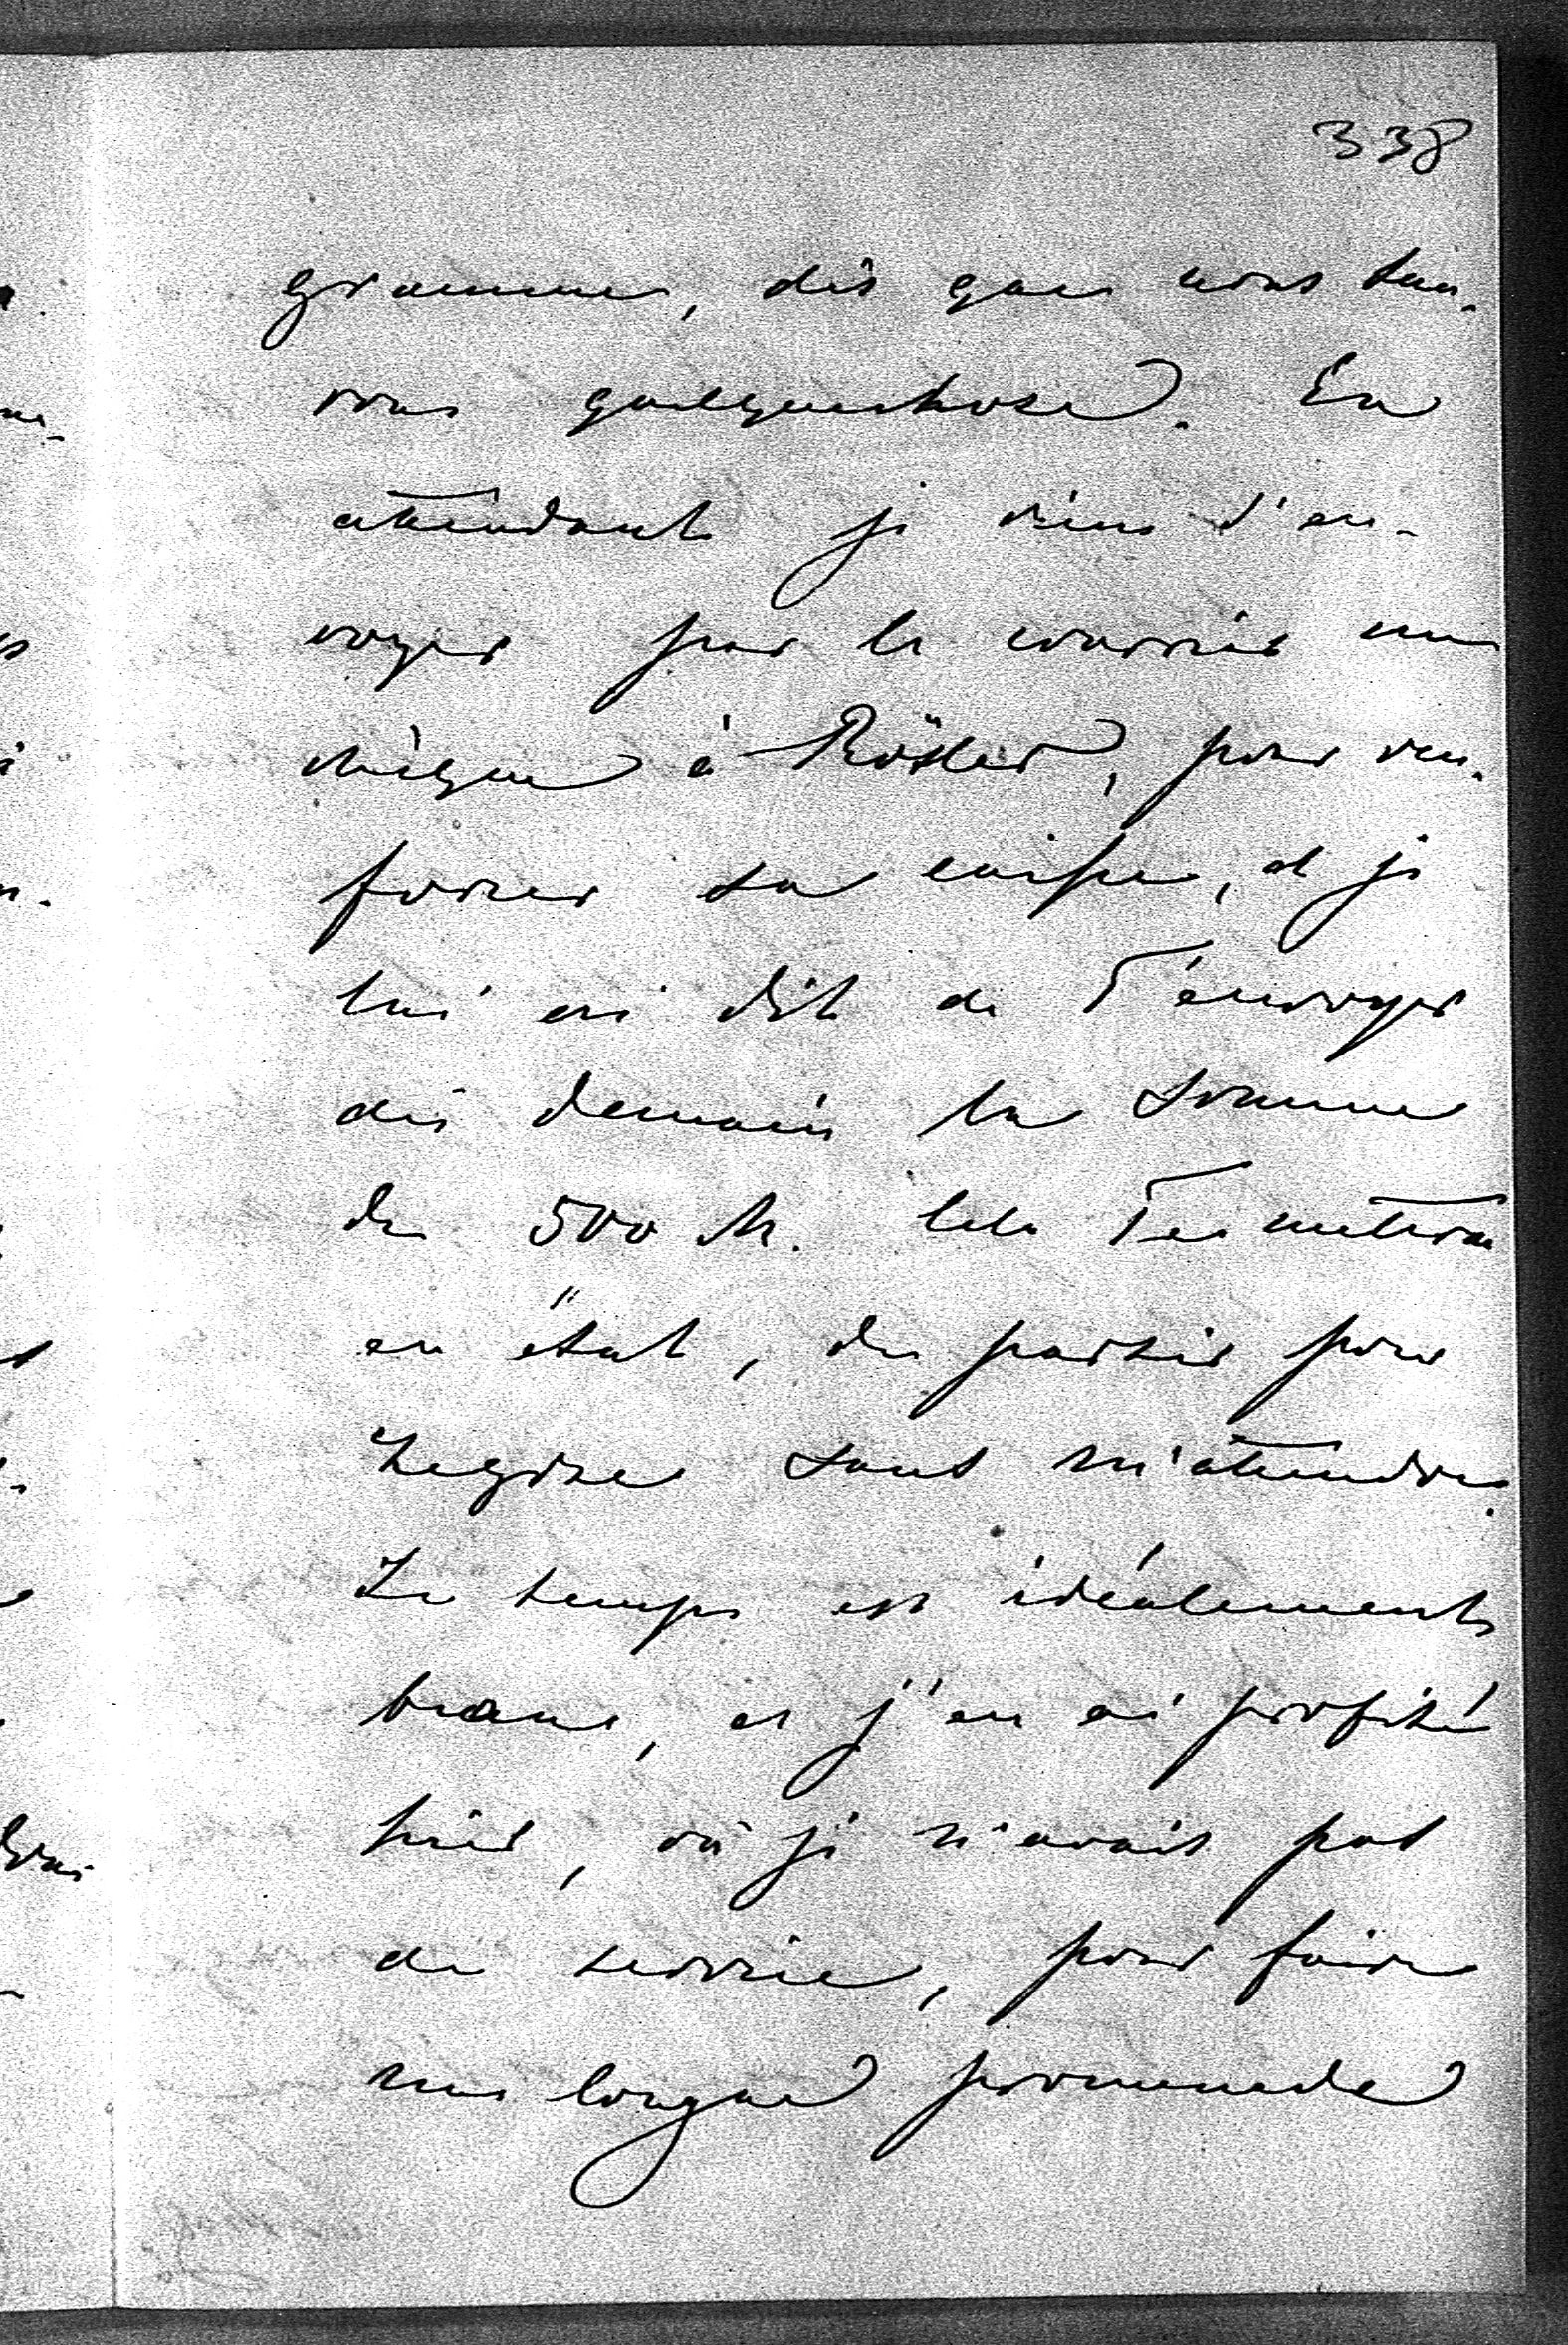 338
gramme, dès que nous sau-
rons quelquechose. En
attendant je viens d'en-
voyer par le courrier un
chèque à Rösler, pour ren-
forcer sa caisse, et je
lui ai dit de T'envoyer
dès demain la somme
de 500 M. Cela Te mettra
en état, de partir pour
sans m'attendre.
Le temps est idéalement
beau, et j'en ai profité
hier, où je n'avais pas
de service, pour faire
une longue promenade